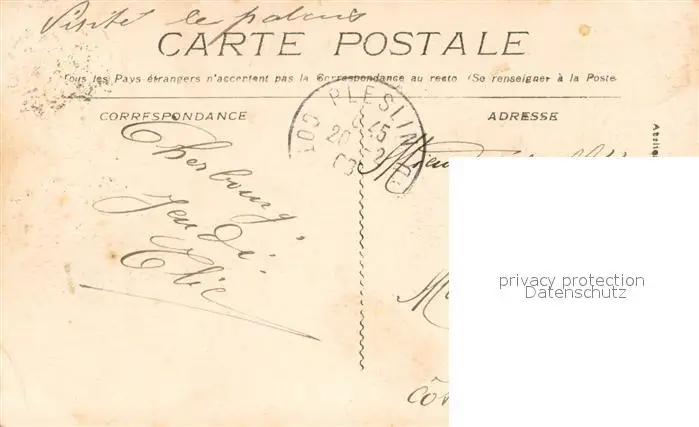 Visité le palais
CARTE POSTALE
Tous les Pays étrangers n'acceptent pas la Correspondance au recto (Se renseigner à la Poste
CORRESPONDANCE
ADRESSE
PLESLIN
COT
6 45
20
03
Cherbourg,
Jeudi.
Elie
privacy protection
Datenschutz